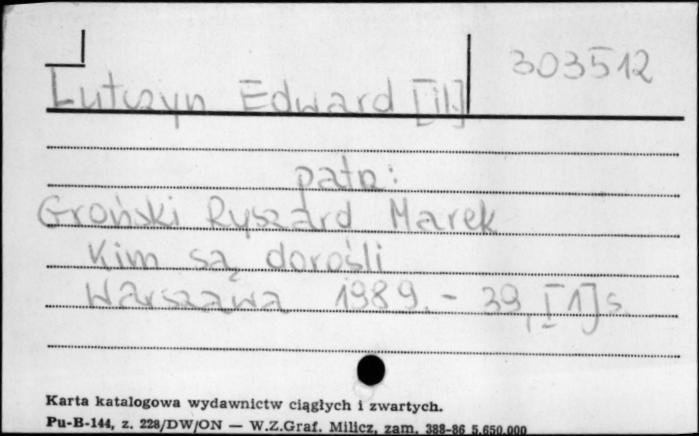 303512
Lutczyn Edward [il.]
patrz:
Groński Ryszard Marek
Kim są dorośli
Warszawa 1989. - 39, [1] s.
Karta katalogowa wydawnictw ciągłych i zwartych.
Pu-B-144, z. 228/DW/ON — W.Z.Graf. Milicz, zam. 388-86 5.650.000